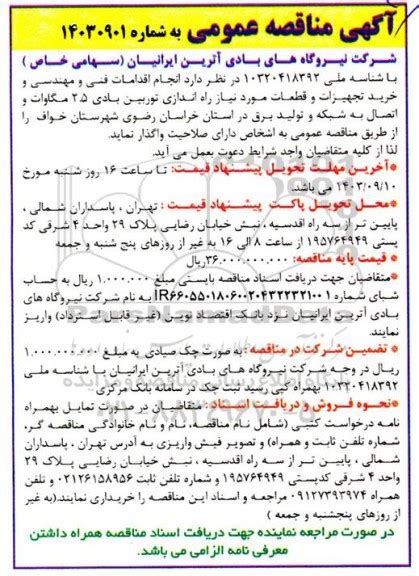 آگهی مناقصه عمومی به شماره ۱۴۰۳۰۹۰۱
شرکت نیروگاه های بادی آترین ایرانیان (سهامی خاص )
با شناسه ملی ۱۰۳۲۰۴۱۸۳۹۲ در نظر دارد انجام اقدامات فنی و مهندسی و
خرید تجهیزات و قطعات مورد نیاز راه اندازی توربین بادی ۲.۵ مگاوات و
اتصال به شبکه و تولید برق در استان خراسان رضوی شهرستان خواف را
از طریق مناقصه عمومی به اشخاص دارای صلاحیت واگذار نماید.
لذا از کلیه متقاضیان واجد شرایط دعوت بعمل می آید.
*آخرین مهلت تحویل پیشنهاد قیمت: تا ساعت ۱۶ روز شنبه مورخ
۱۴۰۳/۰۹/۱۰ می باشد.
*محل تحویل پاکت پیشنهاد قیمت : تهران ، پاسداران شمالی ،
پایین تر از سه راه اقدسیه ، نبش خیابان رضایی پلاک ۲۹ واحد ۴ شرقی کد
پستی ۱۹۵۷۶۴۹۴۹ از ساعت ۸ الی ۱۶ به غیر از روزهای پنج شنبه و جمعه
* قیمت پایه مناقصه: ۳۶.۰۰۰.۰۰۰.۰۰۰ریال
*متقاضیان جهت دریافت اسناد مناقصه بایستی مبلغ ۱.۰۰۰.۰۰۰ ریال به حساب
شبای شماره IR۶۶۰۵۵۰۱۸۰۶۰۰۲۰۴۳۲۲۳۲۱۰۰۱ به نام شرکت نیروگاه های
بادی آترین ایرانیان نزد بانک اقتصاد نوین (غیر قابل استرداد) واریز
نمایند.
* تضمین شرکت در مناقصه : به صورت چک صیادی به مبلغ ۱.۰۰۰.۰۰۰.۰۰۰
ریال در وجه شرکت نیروگاه های بادی آترین ایرانیان با شناسه ملی
۱۰۳۲۰۴۱۸۳۹۲ بهمراه کپی رسید ثبت چک در سامانه بانک مرکزی
*نحوه فروش و دریافت اسناد : متقاضیان در صورت تمایل بهمراه
نامه درخواست کتبی (شامل نام مناقصه، نام و نام خانوادگی مناقصه گر،
شماره تلفن ثابت و همراه) و تصویر فیش واریزی به آدرس تهران ، پاسداران
شمالی ، پایین تر از سه راه اقدسیه ، نبش خیابان رضایی پلاک ۲۹
واحد ۴ شرقی کدپستی ۱۹۵۷۶۴۹۴۹ و شماره تلفن ثابت ۰۲۱۲۶۱۵۸۹۵۶ و تلفن
همراه ۰۹۱۲۷۳۹۳۹۷۴ مراجعه و اسناد این مناقصه را خریداری نمایند.(به غیر
از روزهای پنجشنبه و جمعه )
در صورت مراجعه نماینده جهت دریافت اسناد مناقصه همراه داشتن
معرفی نامه الزامی می باشد.